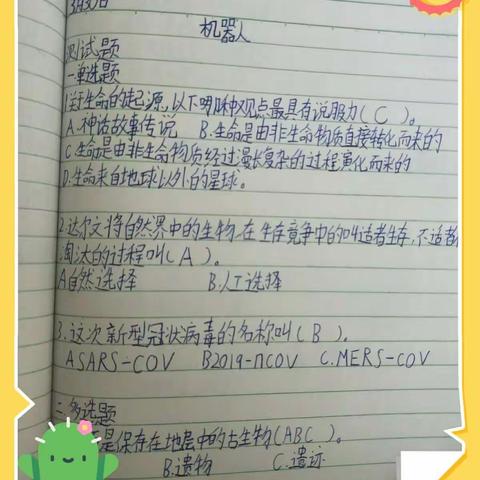 3月30日
机器人
测试题
一.单选题
1.关于生命的起源,以下哪种观点最具有说服力(C)。
A.神话故事传说 B.生命是由非生命物质直接转化而来的
C.生命是由非生命物质经过漫长复杂的过程演化而来的
D.生命来自地球以外的星球。
2.达尔文将自然界中的生物,在生存竞争中的叫适者生存,不适者
淘汰的过程叫(A)。
A自然选择 B.人工选择
3.这次新型冠状病毒的名称叫(B)。
ASARS-COV B2019-nCOV C.MERS-COV
二.多选题
是保存在地层中的古生物(ABC)。
B.遗物 C.遗迹